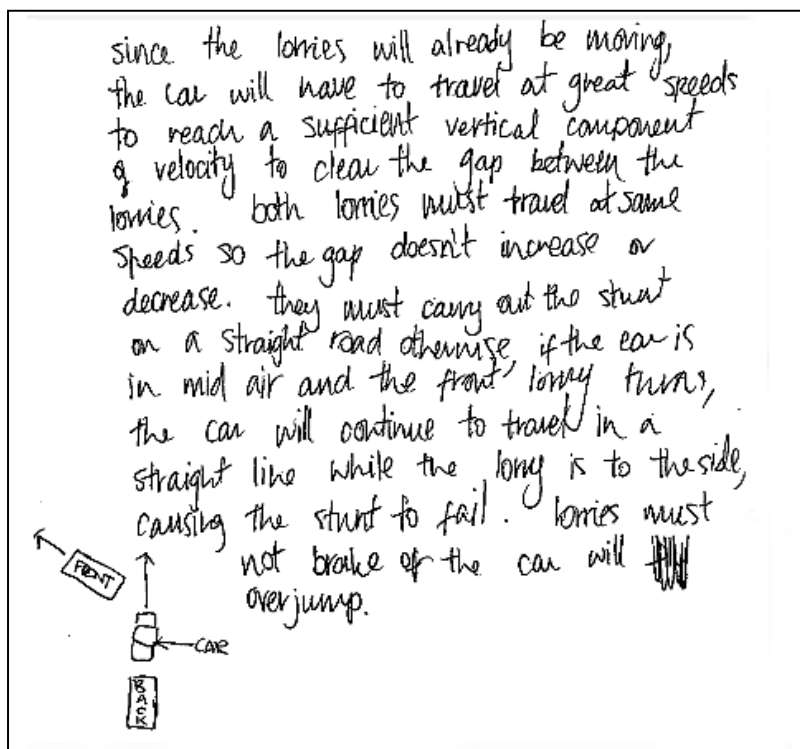 since the lorries will already be moving,
the car will have to travel at great speeds
to reach a sufficient vertical component
of velocity to clear the gap between the
lorries. both lorries must travel at same
speeds so the gap doesn't increase or
decrease. they must carry out the stunt
on a straight road otherwise, if the car is
in mid air and the front lorry turns,
the car will continue to travel in a
straight line while the lorry is to the side,
causing the stunt to fail. lorries must
not brake or the car will
overjump.
FRONT
CAR
BACK